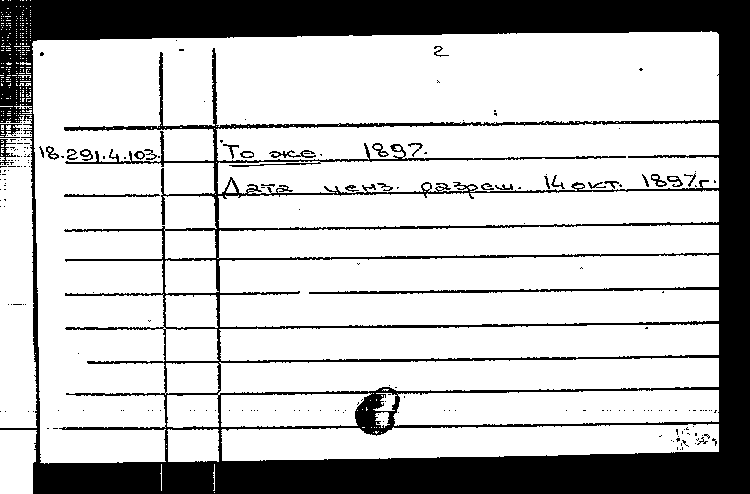 2
18.291.4.103. То же. 1897.
Дата ценз. разреш. 14 окт. 1897г.